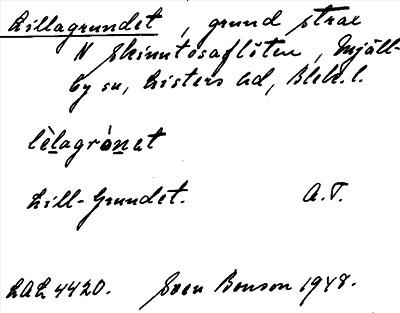 Lillagrundet, grund strax
N Skinntosaflöten, Mjäll-
by sn, Listers hd, Blek. l.
lèlagrònet
Lill-Grundet. A.T.
LAL 4420. Sven Benson 1948.